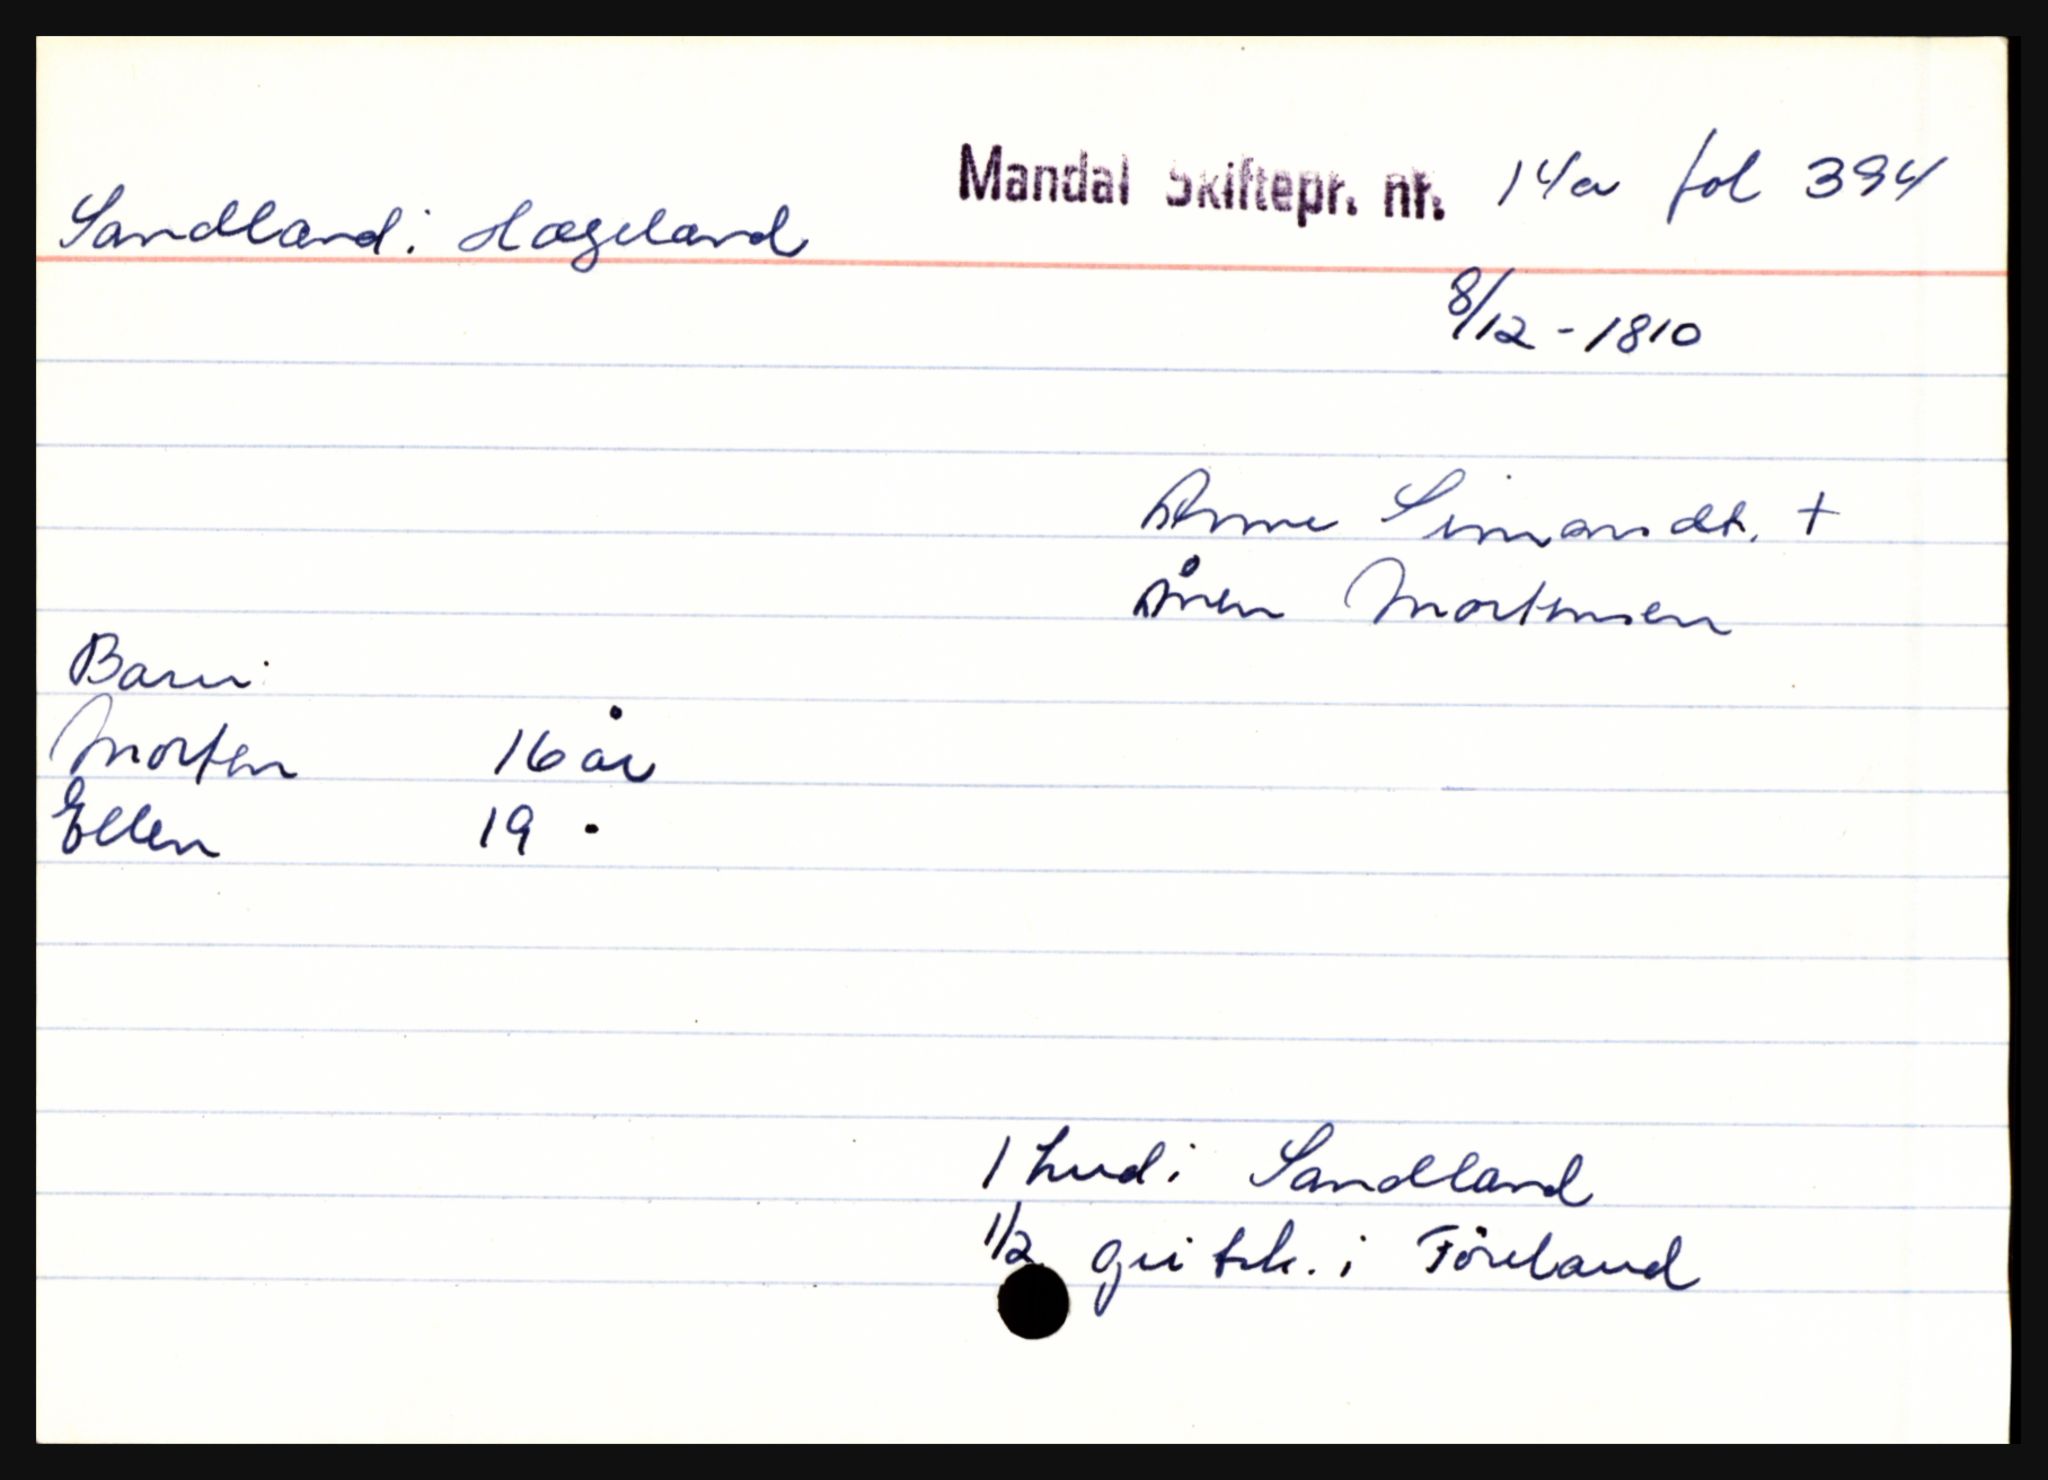 Mandal Skiftepr. nr. 14a fol 394
Sandland i Hægeland
8/12 - 1810
Anne Simonsdt. +
Ånen Mortensen
Barn:
Morten 16 år
Ellen 19 -
1 hud i Sandland
1/2 gri tsk. i Föreland